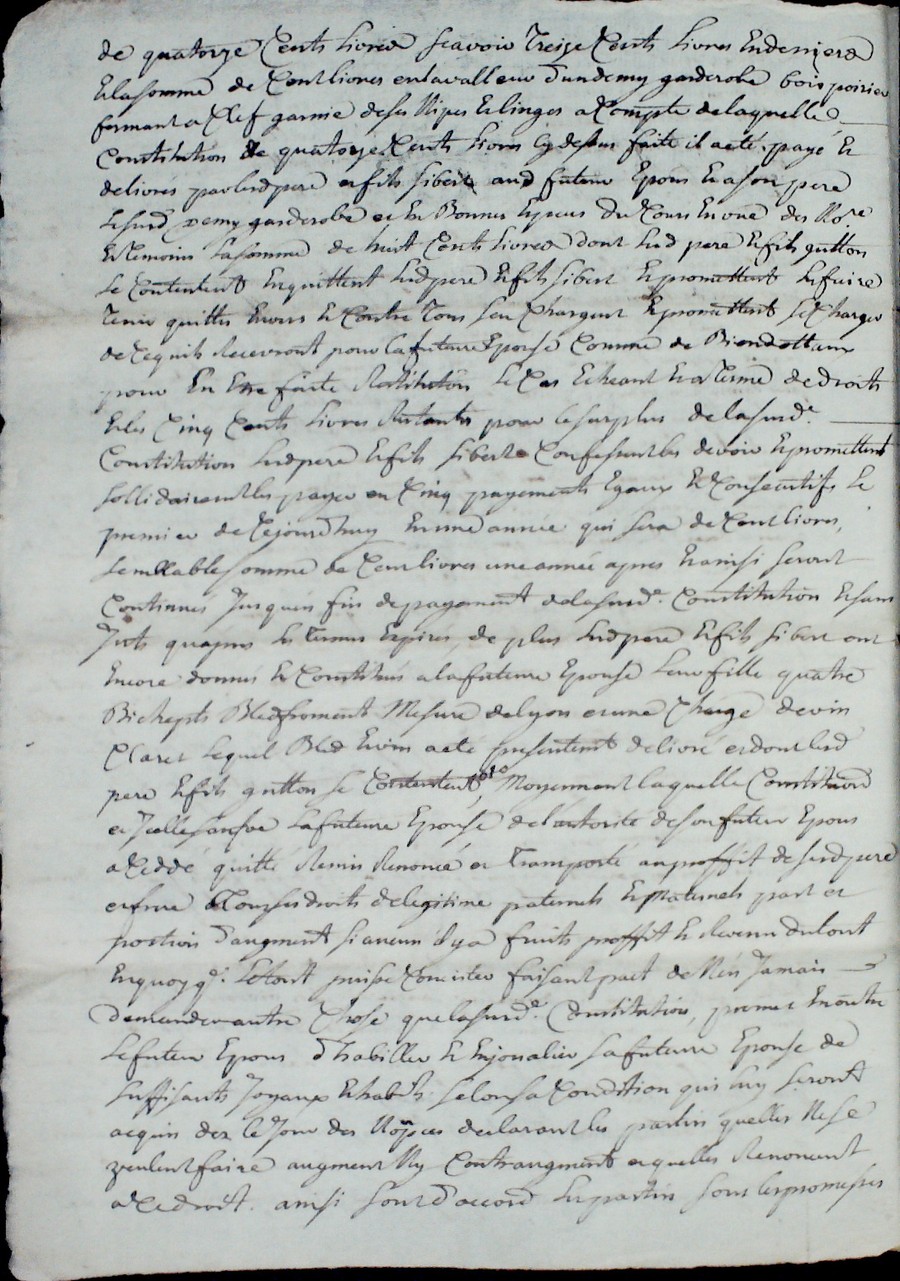 de quatorze Cents livres scavoir treize Cents livres Endeniers
Et la somme de Cent livres en la valleur d'un demy garderobe bois poirier
fermant a Clef garnie de ses Nipes Et linges a Compte de laquelle
Constitution de quatorze Cents livres cy dessus faite il a eté payé Et
delivrés par lesd pere et fils sibert aud futeur Epoux Et a son pere
lesurd demy garderobe et En Bonnes Especes du Cours En vue des No.re
Et temoins la somme de huit Cents livres dont lesd pere Et fils guttton
se Contentent Enquittent lesd pere Et fils sibert Et promettent les faire
tenir quittes Envers Et Contre tous sen Chargent Et promettent se Charger
de Ce quils Recevront pour la future Epouse Comme de Biens dottaux
pour En Etre faite Restitution le Cas Echeant Et a terme de droits
Et les Cinq Cents livres Restantes pour le surplus de la surd.e
Constitution lesd pere Et fils sibert Confessent les devoir Et promettent
sollidairement les payer en Cinq payements Egaux Et Consecutifs le
premier de Cejourd'huy En une année qui sera de Cent livres,
semblable somme de Cent livres une année apres Et ainsi seront
Continués Jusques fin de payement de la surd.e Constitution Et sans
Jnts quapres les termes Expirés, de plus lesd pere Et fils sibert ont
Encore donnés Et Constitués a la future Epouse leur fille quatre
Bichepts Bled froment Mesure de lyon et une Charge de vin
Claret lequel Bled Et vin a eté presentemt delivré et dont lesd
pere Et fils gutton se Contentent, Moyennant laquelle Constitution
et Jcelle sauve la future Epouse de l'autorité de son futur Epoux
a Ceddé quitté Remis Renoncé et transporté au proffit de sesd pere
et frere tous ses droits de legitime paternels Et Maternels part et
portion d'augment si aucun il y a fruits proffit Et Revenu du tout
En quoy q.e le tout puisse Concister faisant pact de Nen Jamais
demander autre Chose que la surd.e Constitution, promet En outre
le futeur Epoux d'habiller Et Enjoualier sa future Epouse de
suffisants Joyaux Et habits selon sa Condition qui luy seront
acquis dez le Jour des Nopces declarant les parties quelles Ne se
veulent faire augment Ny Contraugment et quelles Renoncent
a Ce droit. ainsi sont d'accord les parties sous les promesses